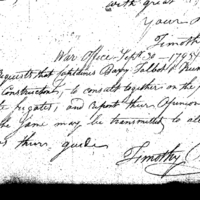 with great
Your
Timoth
War Office Sept. 20 - 1794
requests that Captains Barry Talbot &
Construction, to consult together on the
frigates, and report their Opinion
the same may be transmitted to all
their guide
Timothy